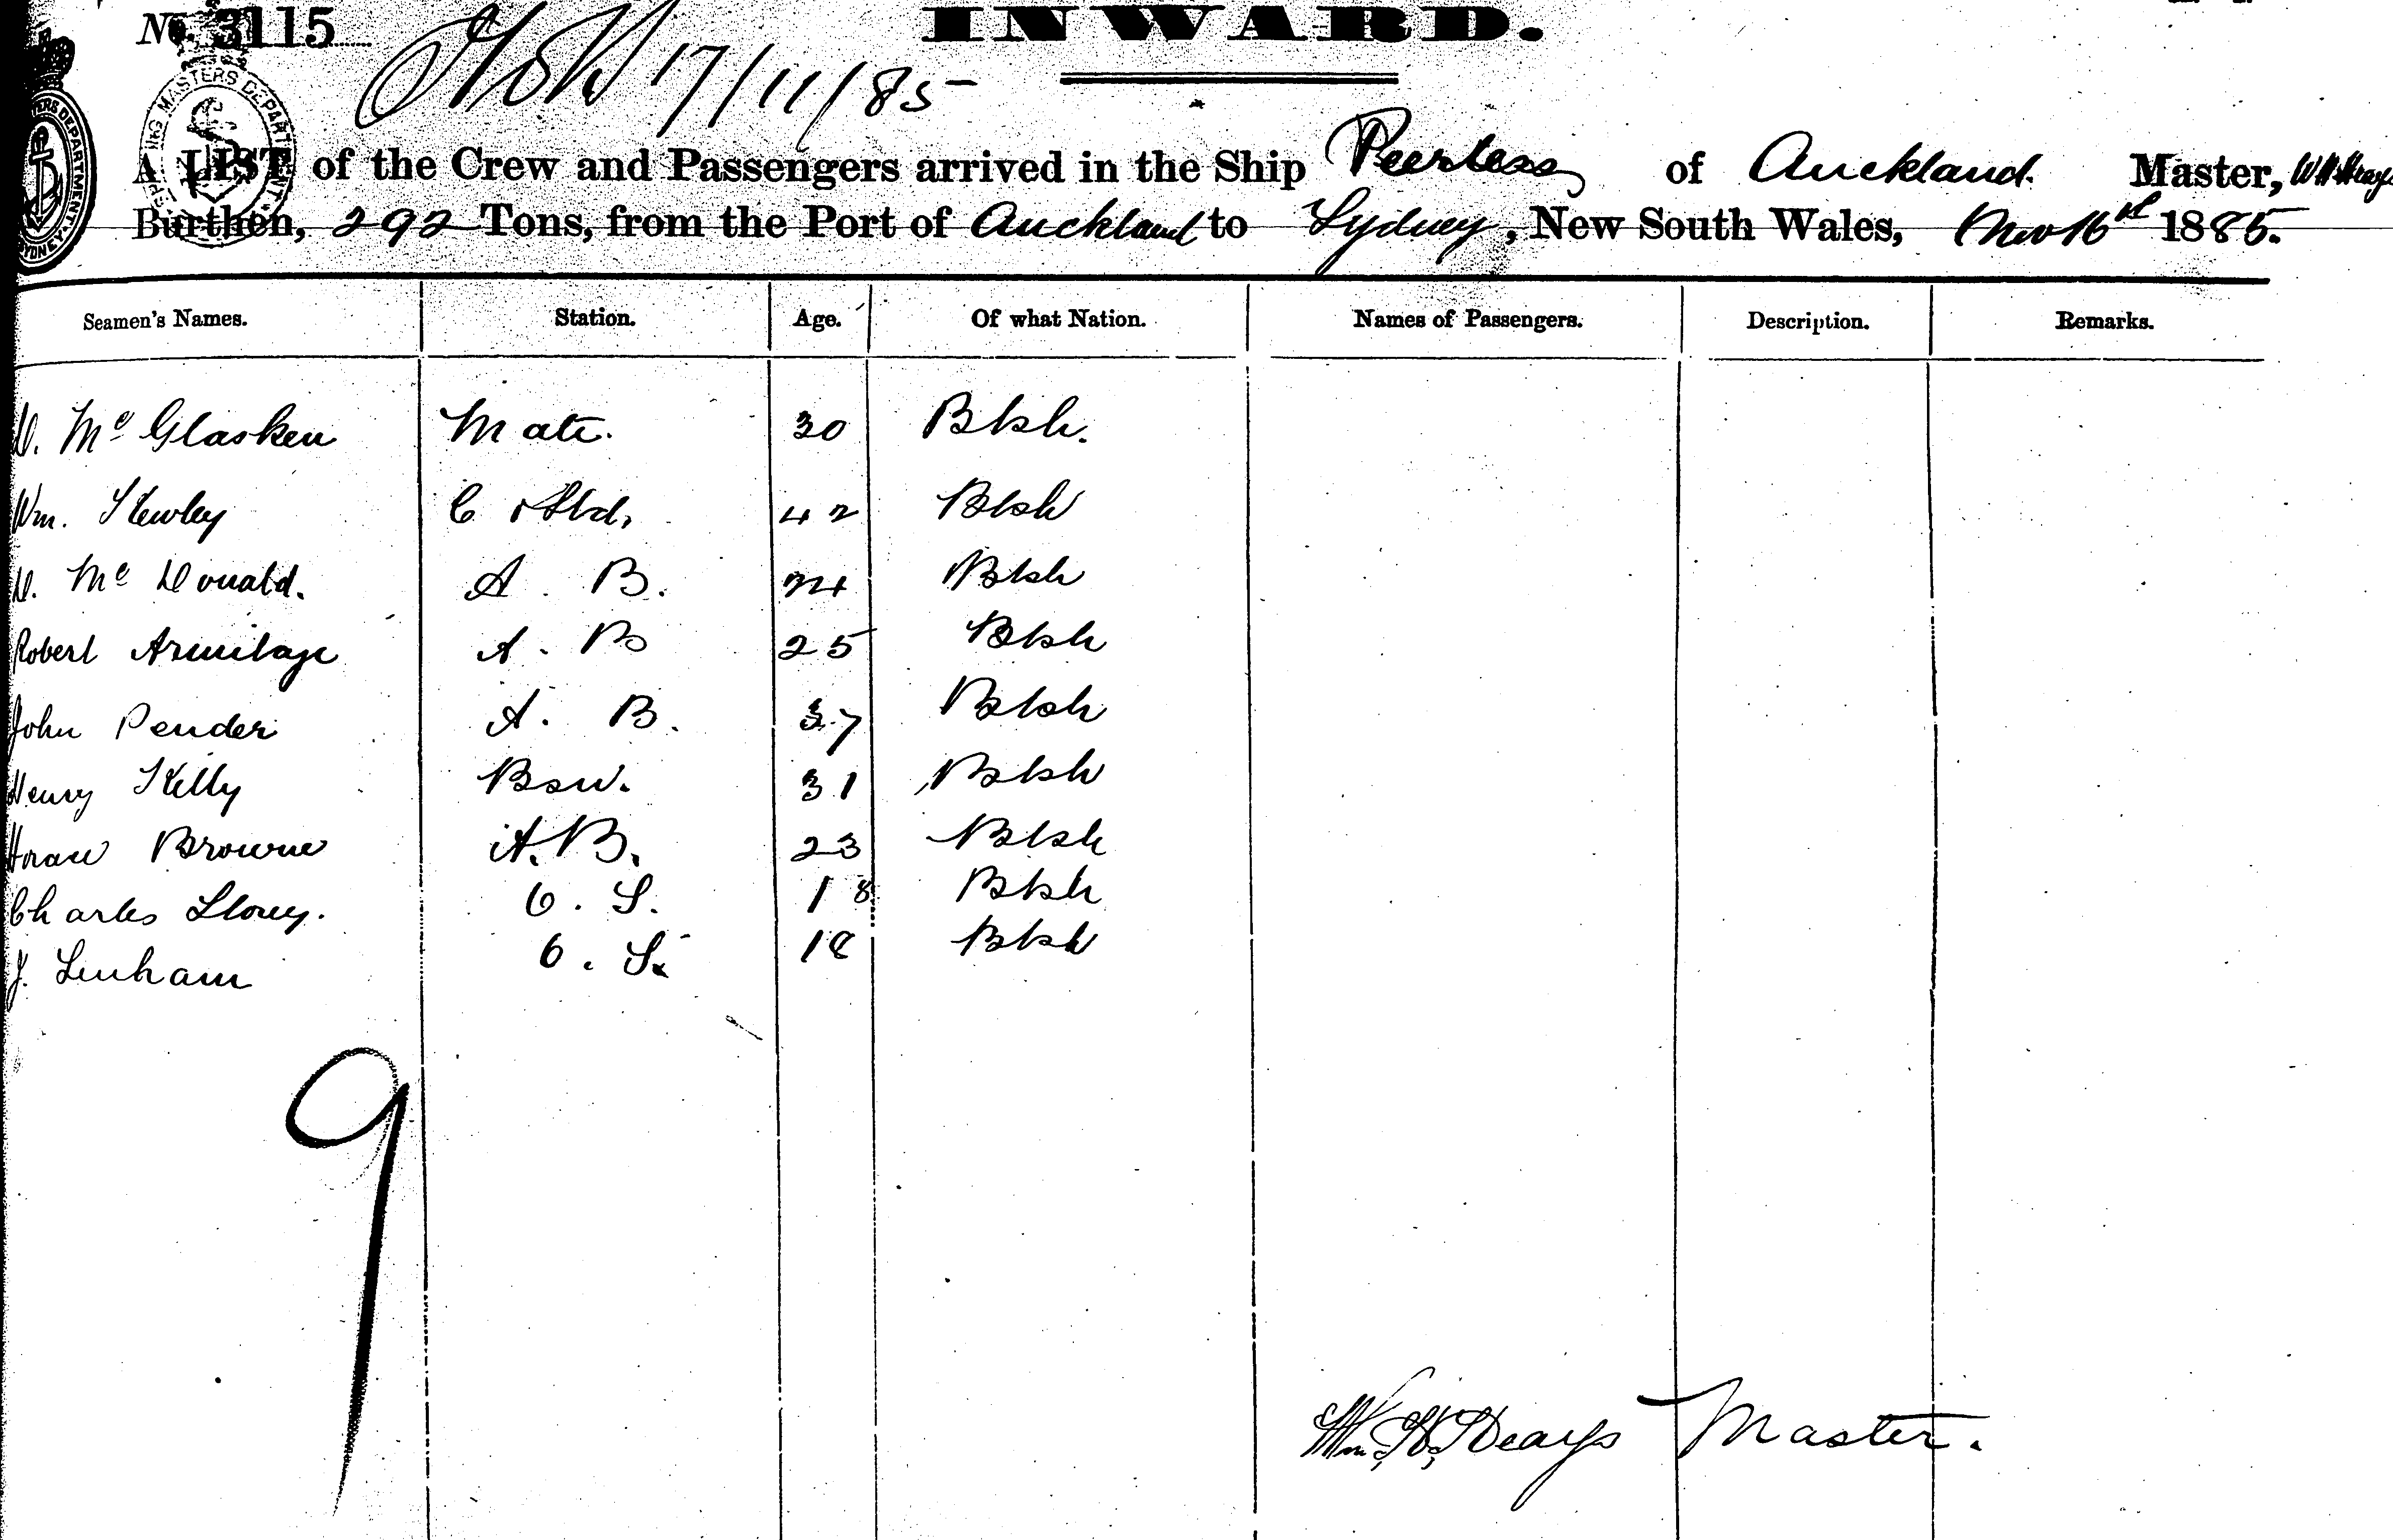 No. 3115
INWARD.
17/11/85
SHIPPING MASTERS DEPARTMENT
A LIST of the Crew and Passengers arrived in the Ship Peerless of Auckland. Master, W H
Burthen, 292 Tons, from the Port of Auckland to Sydney, New South Wales, Nov 16th 1885.
Seamen's Names. Station. Age. Of what Nation. Names of Passengers. Description. Remarks.
D. Mc Glasken Mate. 30 Btsh.
Wm. C & Std. 42 Btsh
D. Mc Donald. A. B. 24 Btsh
Robert Armitage A. B 25 Btsh
John Pender A. B. 37 Btsh
Henry Kelly Bsw. 31 Btsh
Horace Browne A.B. 23 Btsh
Charles Storey. O. S. 18 Btsh
J. Lenham O. S. 18 Btsh
9
Wm. H. Master.